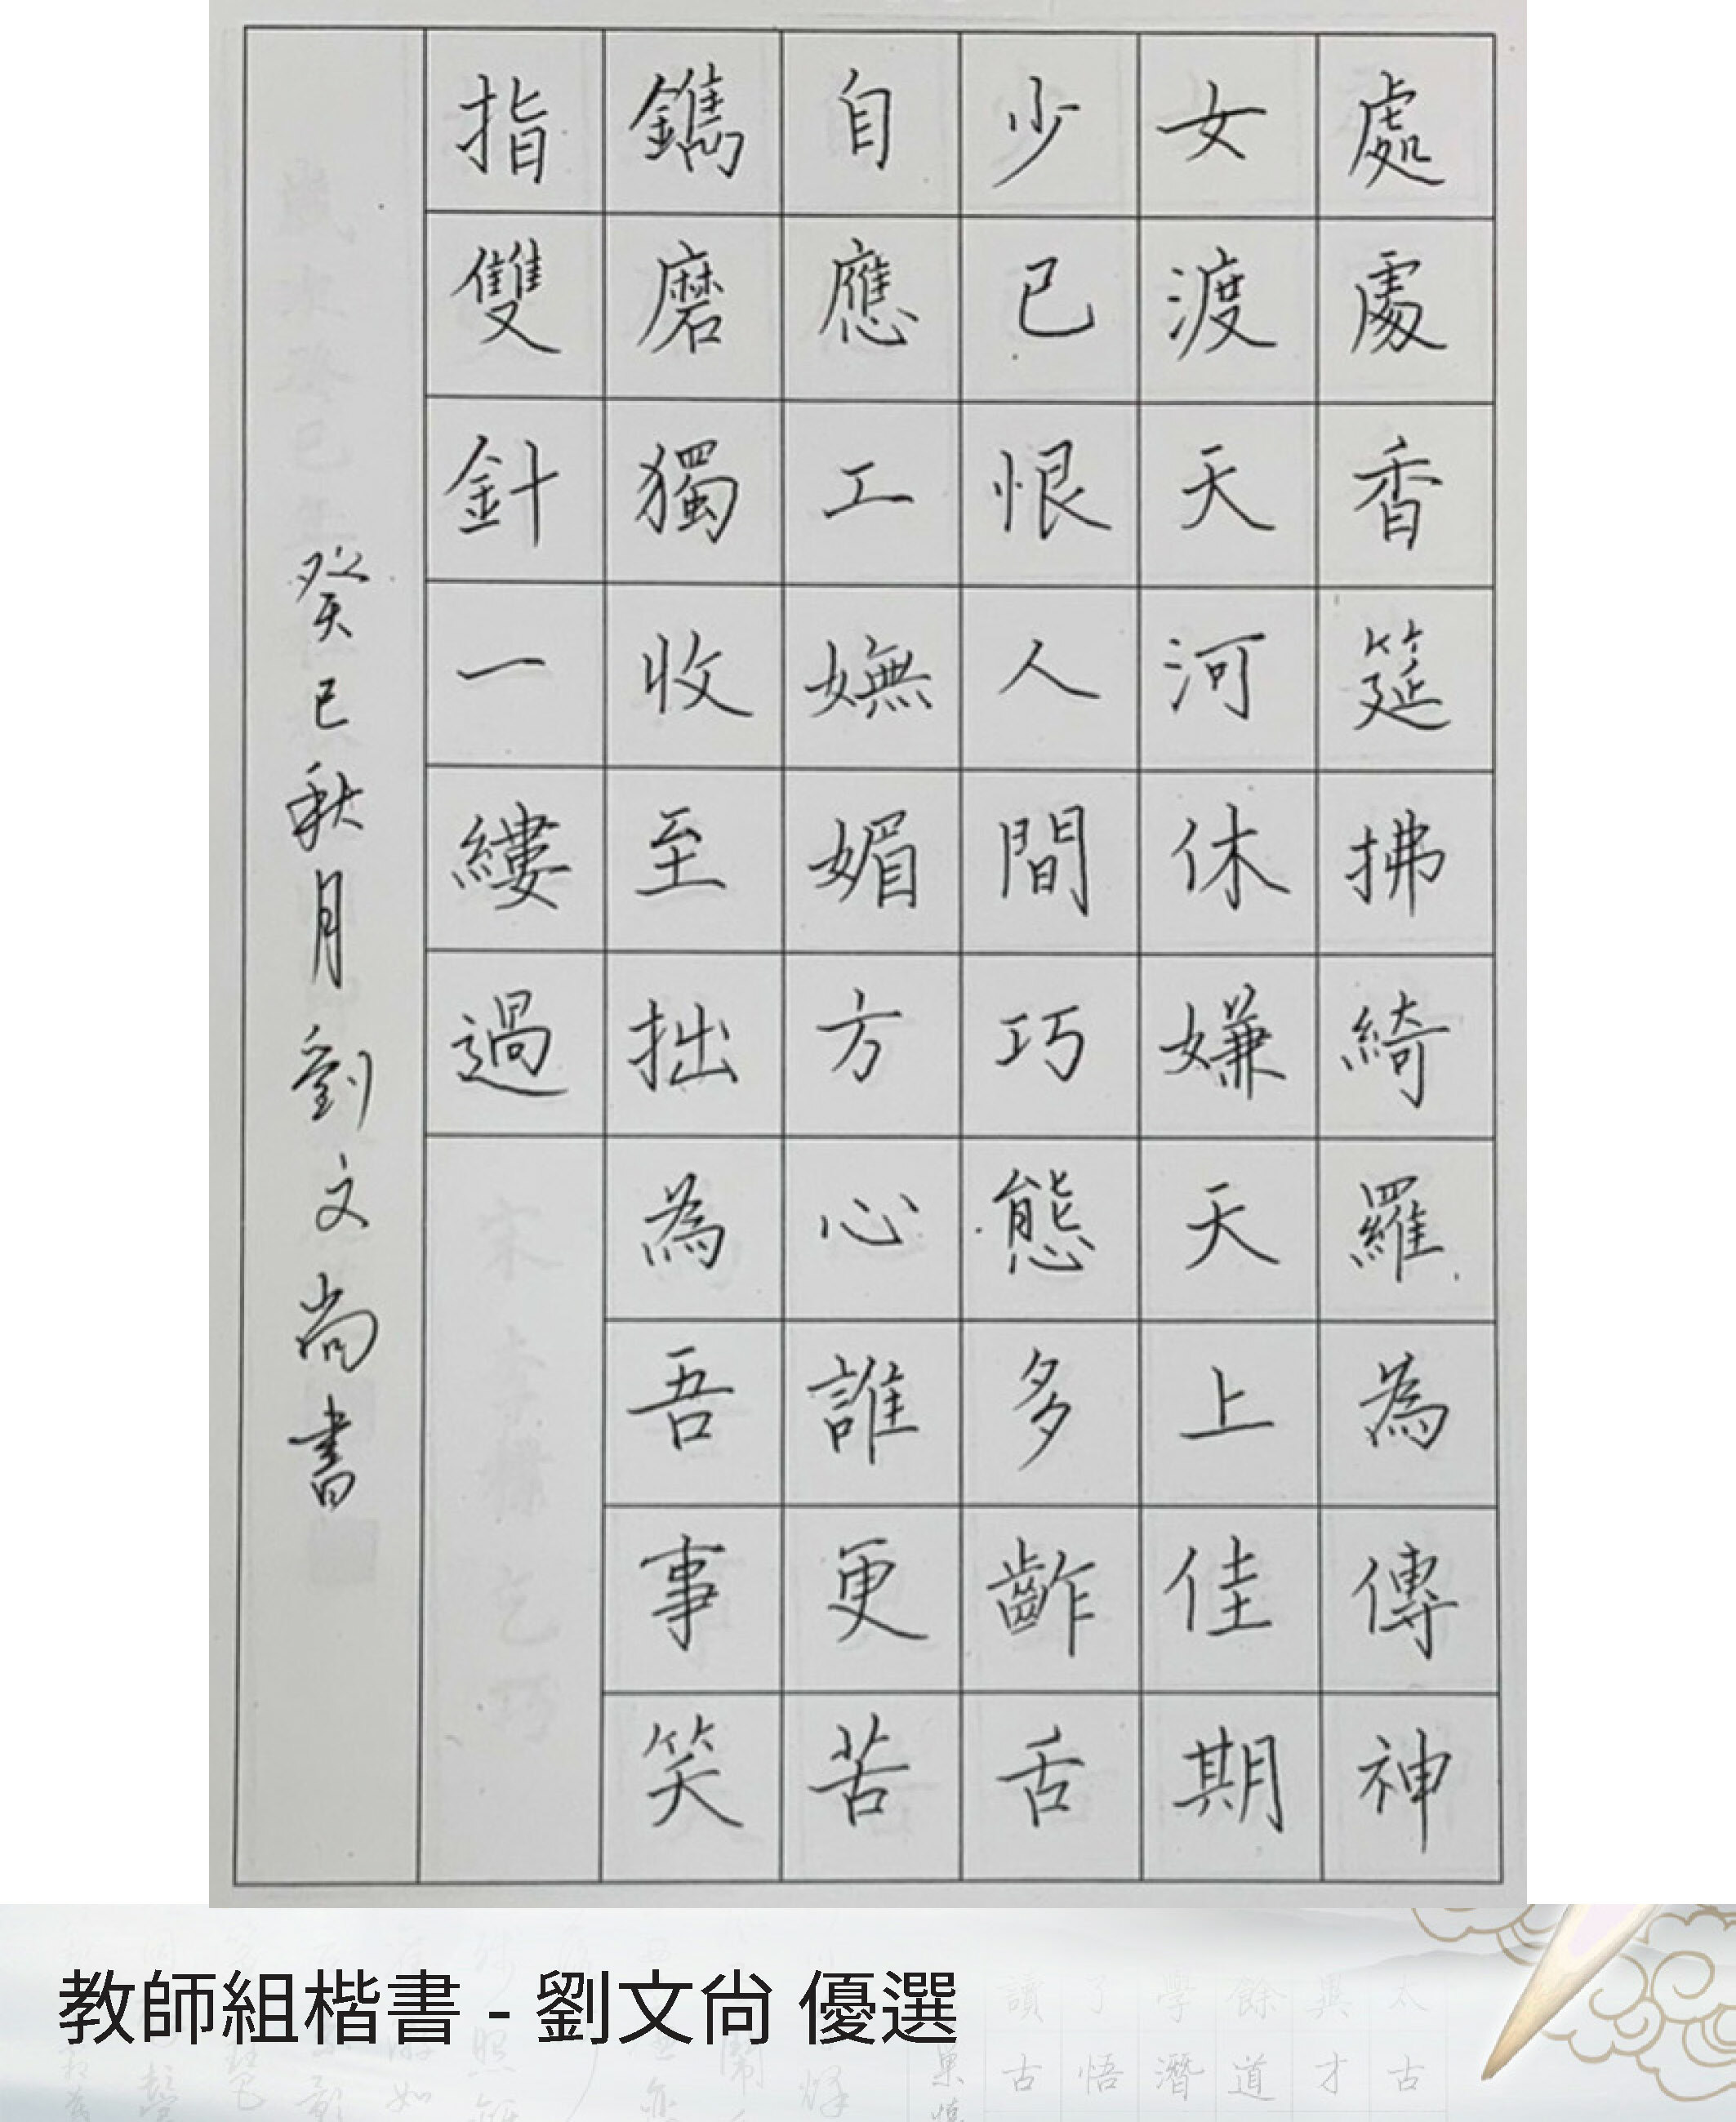 處處香筵拂綺羅為傳神
女渡天河休嫌天上佳期
少已恨人間巧態多齚舌
自應工嫵媚方心誰更苦
鐫磨獨收至拙為吾事笑
指雙針一縷過
癸巳秋月劉文尚書
教師組楷書 - 劉文尚 優選
讀了學餘與太
古悟潛道才古